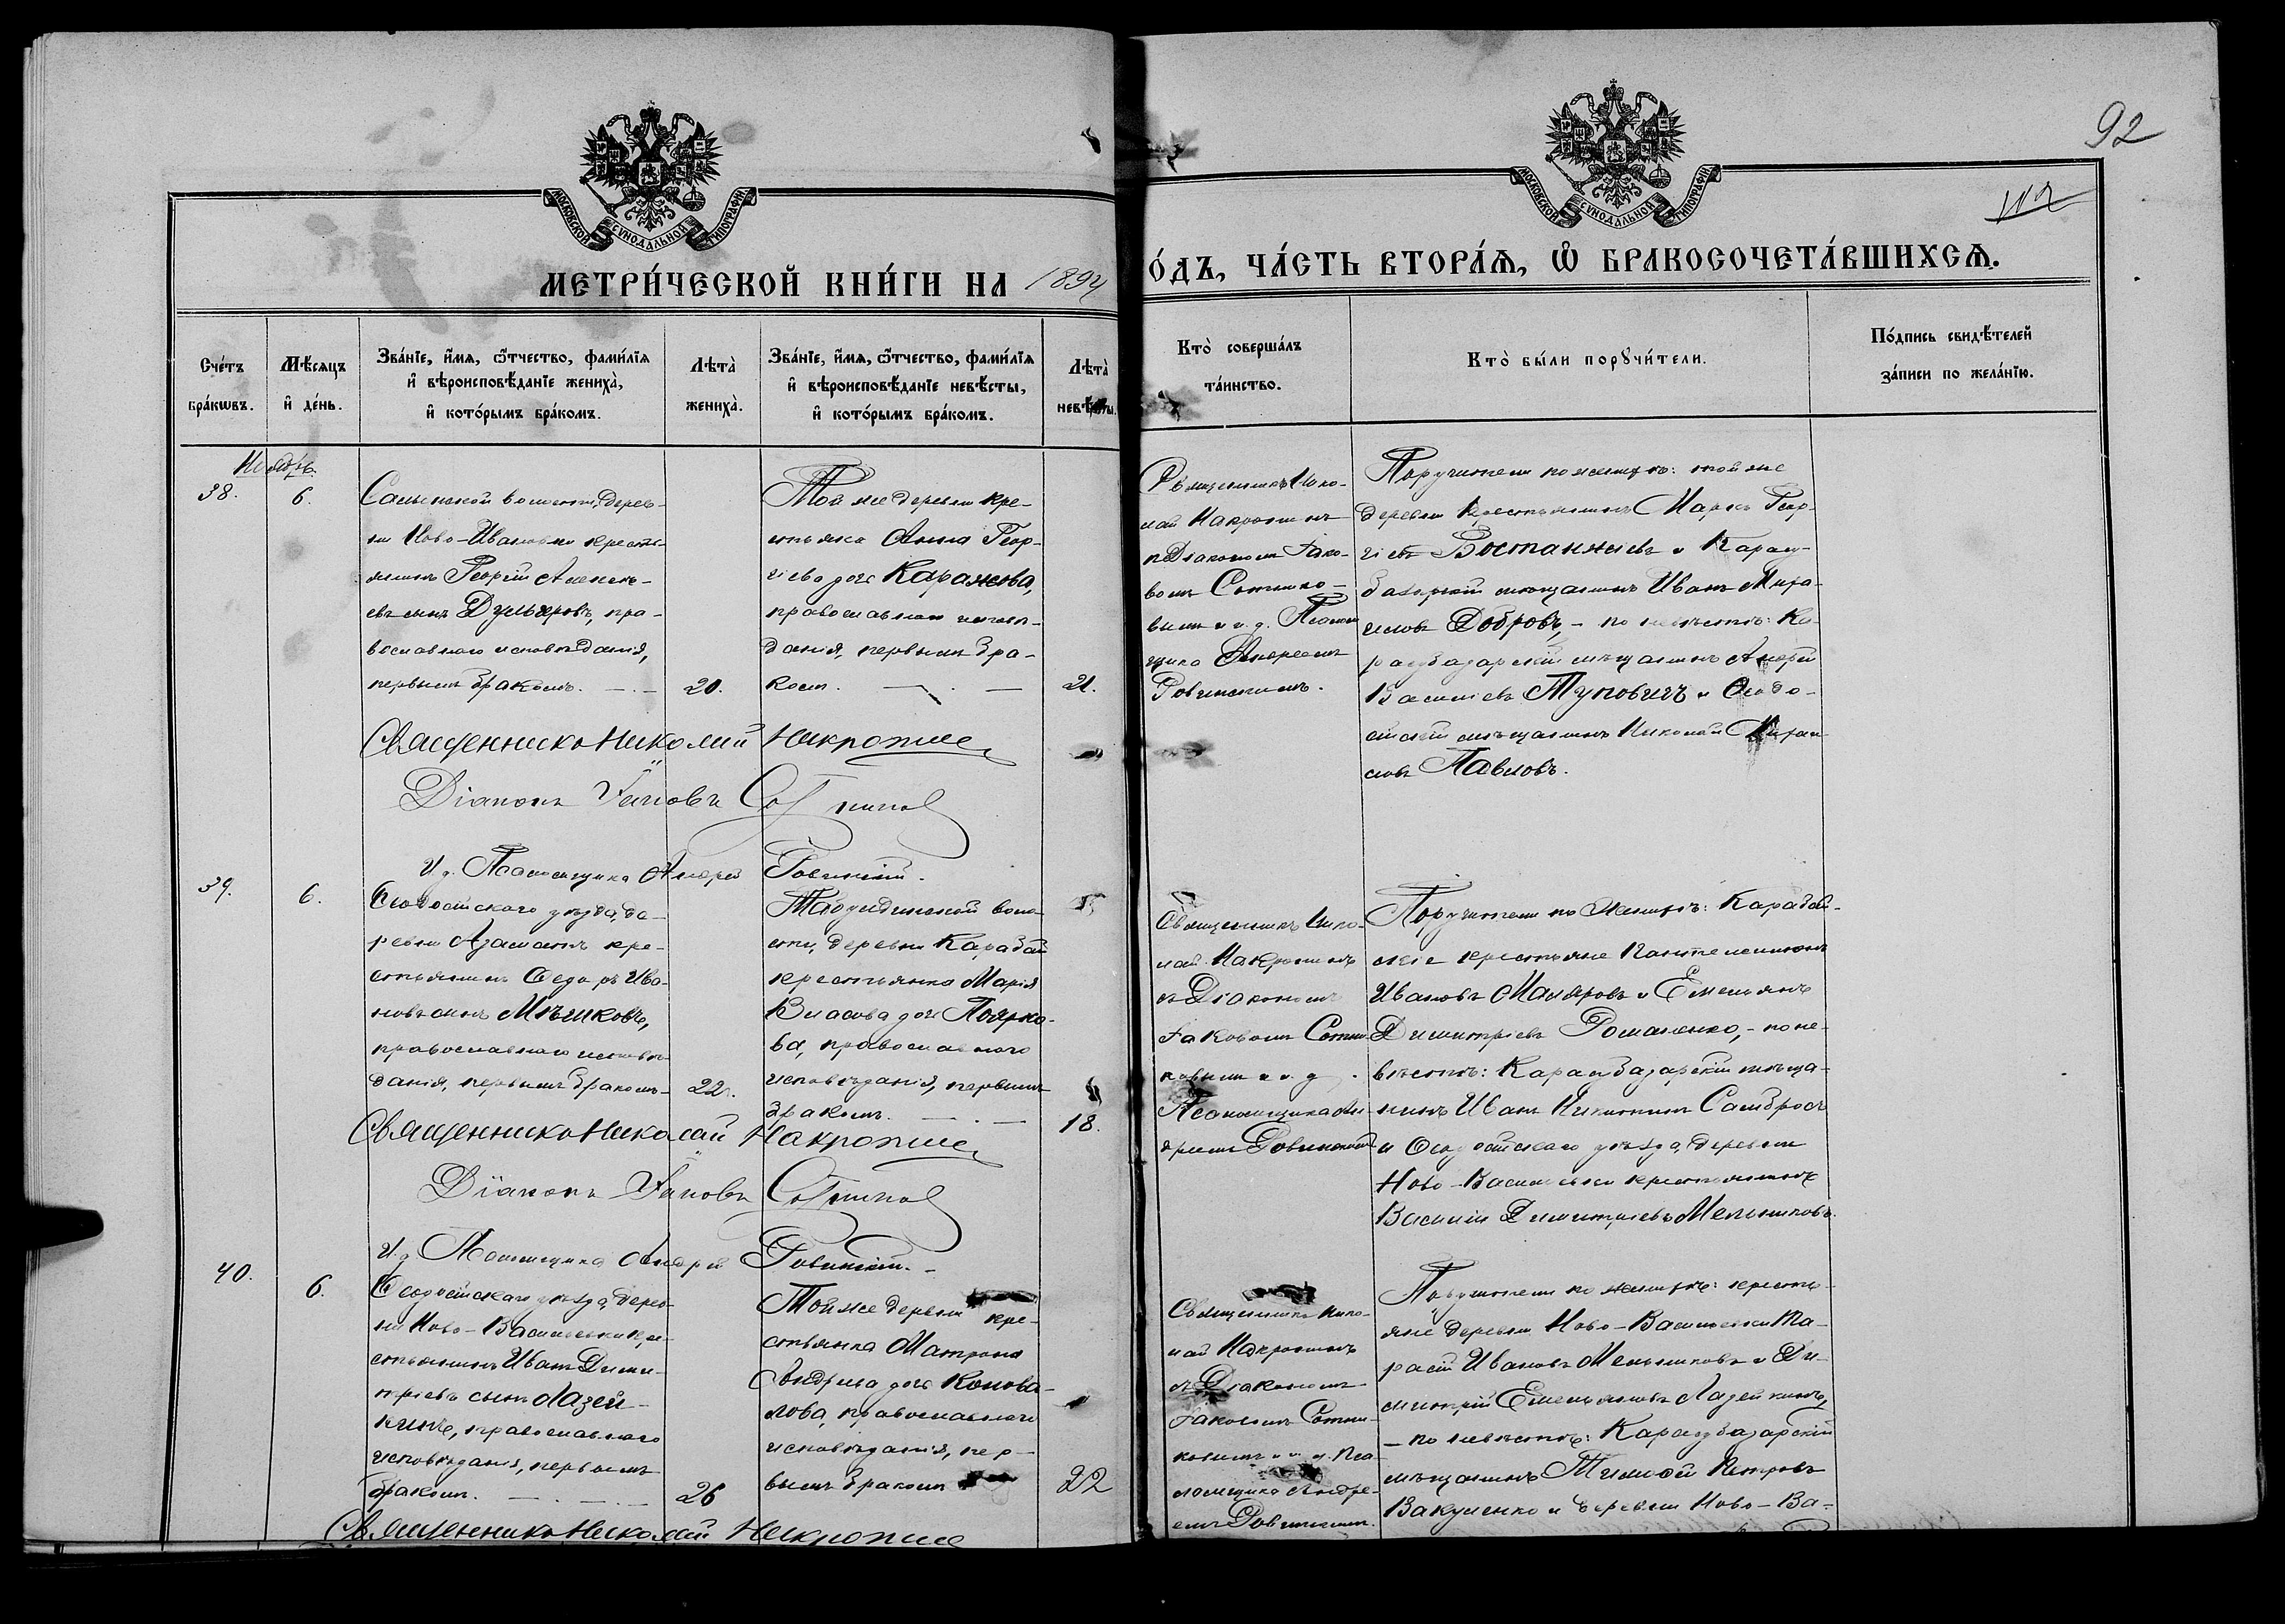 92
112
МОСКОВСКОЙ СѴНОДАЛЬНОЙ ТИПОГРАФІИ
МОСКОВСКОЙ СѴНОДАЛЬНОЙ ТИПОГРАФІИ
МЕТРИ́ЧЕСКОЙ КНИ́ГИ НА 1894
О́ДЪ, ЧА́СТЬ ВТОРА́Я, Ѡ БРАКОСОЧЕТА́ВШИХСЯ.
Сче́тъ бра́кѡвъ.
Мѣ́сяцъ и҆ де́нь.
Зва́нїе, и҆́мя, ѻ҆́тчество, фами́лїя
и҆ вѣроисповѣ́данїе жениха̀,
и҆ кото́рымъ бра́комъ.
Лѣта̀ жениха̀.
Зва́нїе, и҆́мя, ѻ҆́тчество, фами́лїя
и҆ вѣроисповѣ́данїе невѣ́сты,
и҆ кото́рымъ бра́комъ.
Лѣта̀ невѣ́сты.
Кто̀ соверша́лъ
та́инство.
Кто̀ бы́ли порꙋчи́тели.
По́дпись свидѣ́телей
за́писи по жела́нїю.
Ноябрь.
38.
6.
Салынской волости, дерев-
ни Ново-Ивановки кресть-
янинъ Георгій Алексѣ-
евъ сынъ Дульгеровъ, пра-
вославнаго исповѣданія,
первымъ бракомъ.
20.
Той же деревни кре-
стьянка Анна Геор-
гіева дочь Каражова,
православнаго исповѣ-
данія, первымъ бра-
комъ.
21.
Священникъ Нико-
лай Макропинъ
съ Діакономъ Іако-
вомъ Сотнико-
вымъ и и. д. Псалом
щика Андреемъ
Ровинскимъ.
Поручители по женихѣ: той же
деревни крестьянинъ Марко Геор-
гіевъ Бостанжіевъ и Карасу-
базарскій мѣщанинъ Иванъ
Добровъ, - по невѣстѣ: Ка-
расубазарскій мѣщанинъ Андрей
Василіевъ Туповичъ и Ѳеодо-
сійскій мѣщанинъ Николай
Павловъ.
Священникъ Николай Макропинъ
Діаконъ Іаковъ Сотниковъ
И. д. Псаломщика Андрей Ровинскій.
39.
6.
Ѳеодосійскаго уѣзда, де-
ревни Азаматъ кре-
стьянинъ Ѳедоръ Ива-
новъ сынъ Мѣшковъ,
православнаго исповѣ-
данія, первымъ бракомъ
22.
Табулдинской воло-
сти, деревни Карабай
крестьянка Марія
Власова дочь Поярко-
ва, православнаго
исповѣданія, первымъ
бракомъ.
18.
Священникъ Нико-
лай Макропинъ
съ Діакономъ
Іаковомъ Сотни-
ковымъ и и. д.
Псаломщика Ан-
дреемъ Ровинскимъ
Поручители по женихѣ: Карабай-
скіе крестьяне Пантелеимонъ
Ивановъ Маляровъ и Емельянъ
Димитріевъ Романенко, - по не-
вѣстѣ: Карасубазарскій мѣща-
нинъ Иванъ Никитинъ Самбросъ
и Ѳеодосійскаго уѣзда, деревни
Ново-Васильевки крестьянинъ
Василій Димитріевъ Мельниковъ.
Священникъ Николай Макропинъ
Діаконъ Іаковъ Сотниковъ
И. д. Псаломщика Андрей Ровинскій.
40.
6.
Ѳеодосійскаго уѣзда, дерев-
ни Ново-Васильевки кре-
стьянинъ Иванъ Дими-
тріевъ сынъ Лазей-
кинъ, православнаго
исповѣданія, первымъ
бракомъ.
26
Той же деревни кре-
стьянка Матрона
Андреева дочь Конова-
лова, православнаго
исповѣданія, пер-
вымъ бракомъ
22
Священникъ Нико-
лай Макропинъ
съ Діакономъ
Іаковомъ Сотни-
ковымъ и и. д. Пса-
ломщика Андре-
емъ Ровинскимъ.
Поручители по женихѣ: кресть-
яне деревни Ново-Васильевки Та-
расій Ивановъ Мельниковъ и Ди-
митрій Емельяновъ Лазейкинъ,
- по невѣстѣ: Карасубазарскій
мѣщанинъ Тимофей Петровъ
Вакуленко и деревни Ново-Ва-
Священникъ Николай Макропинъ